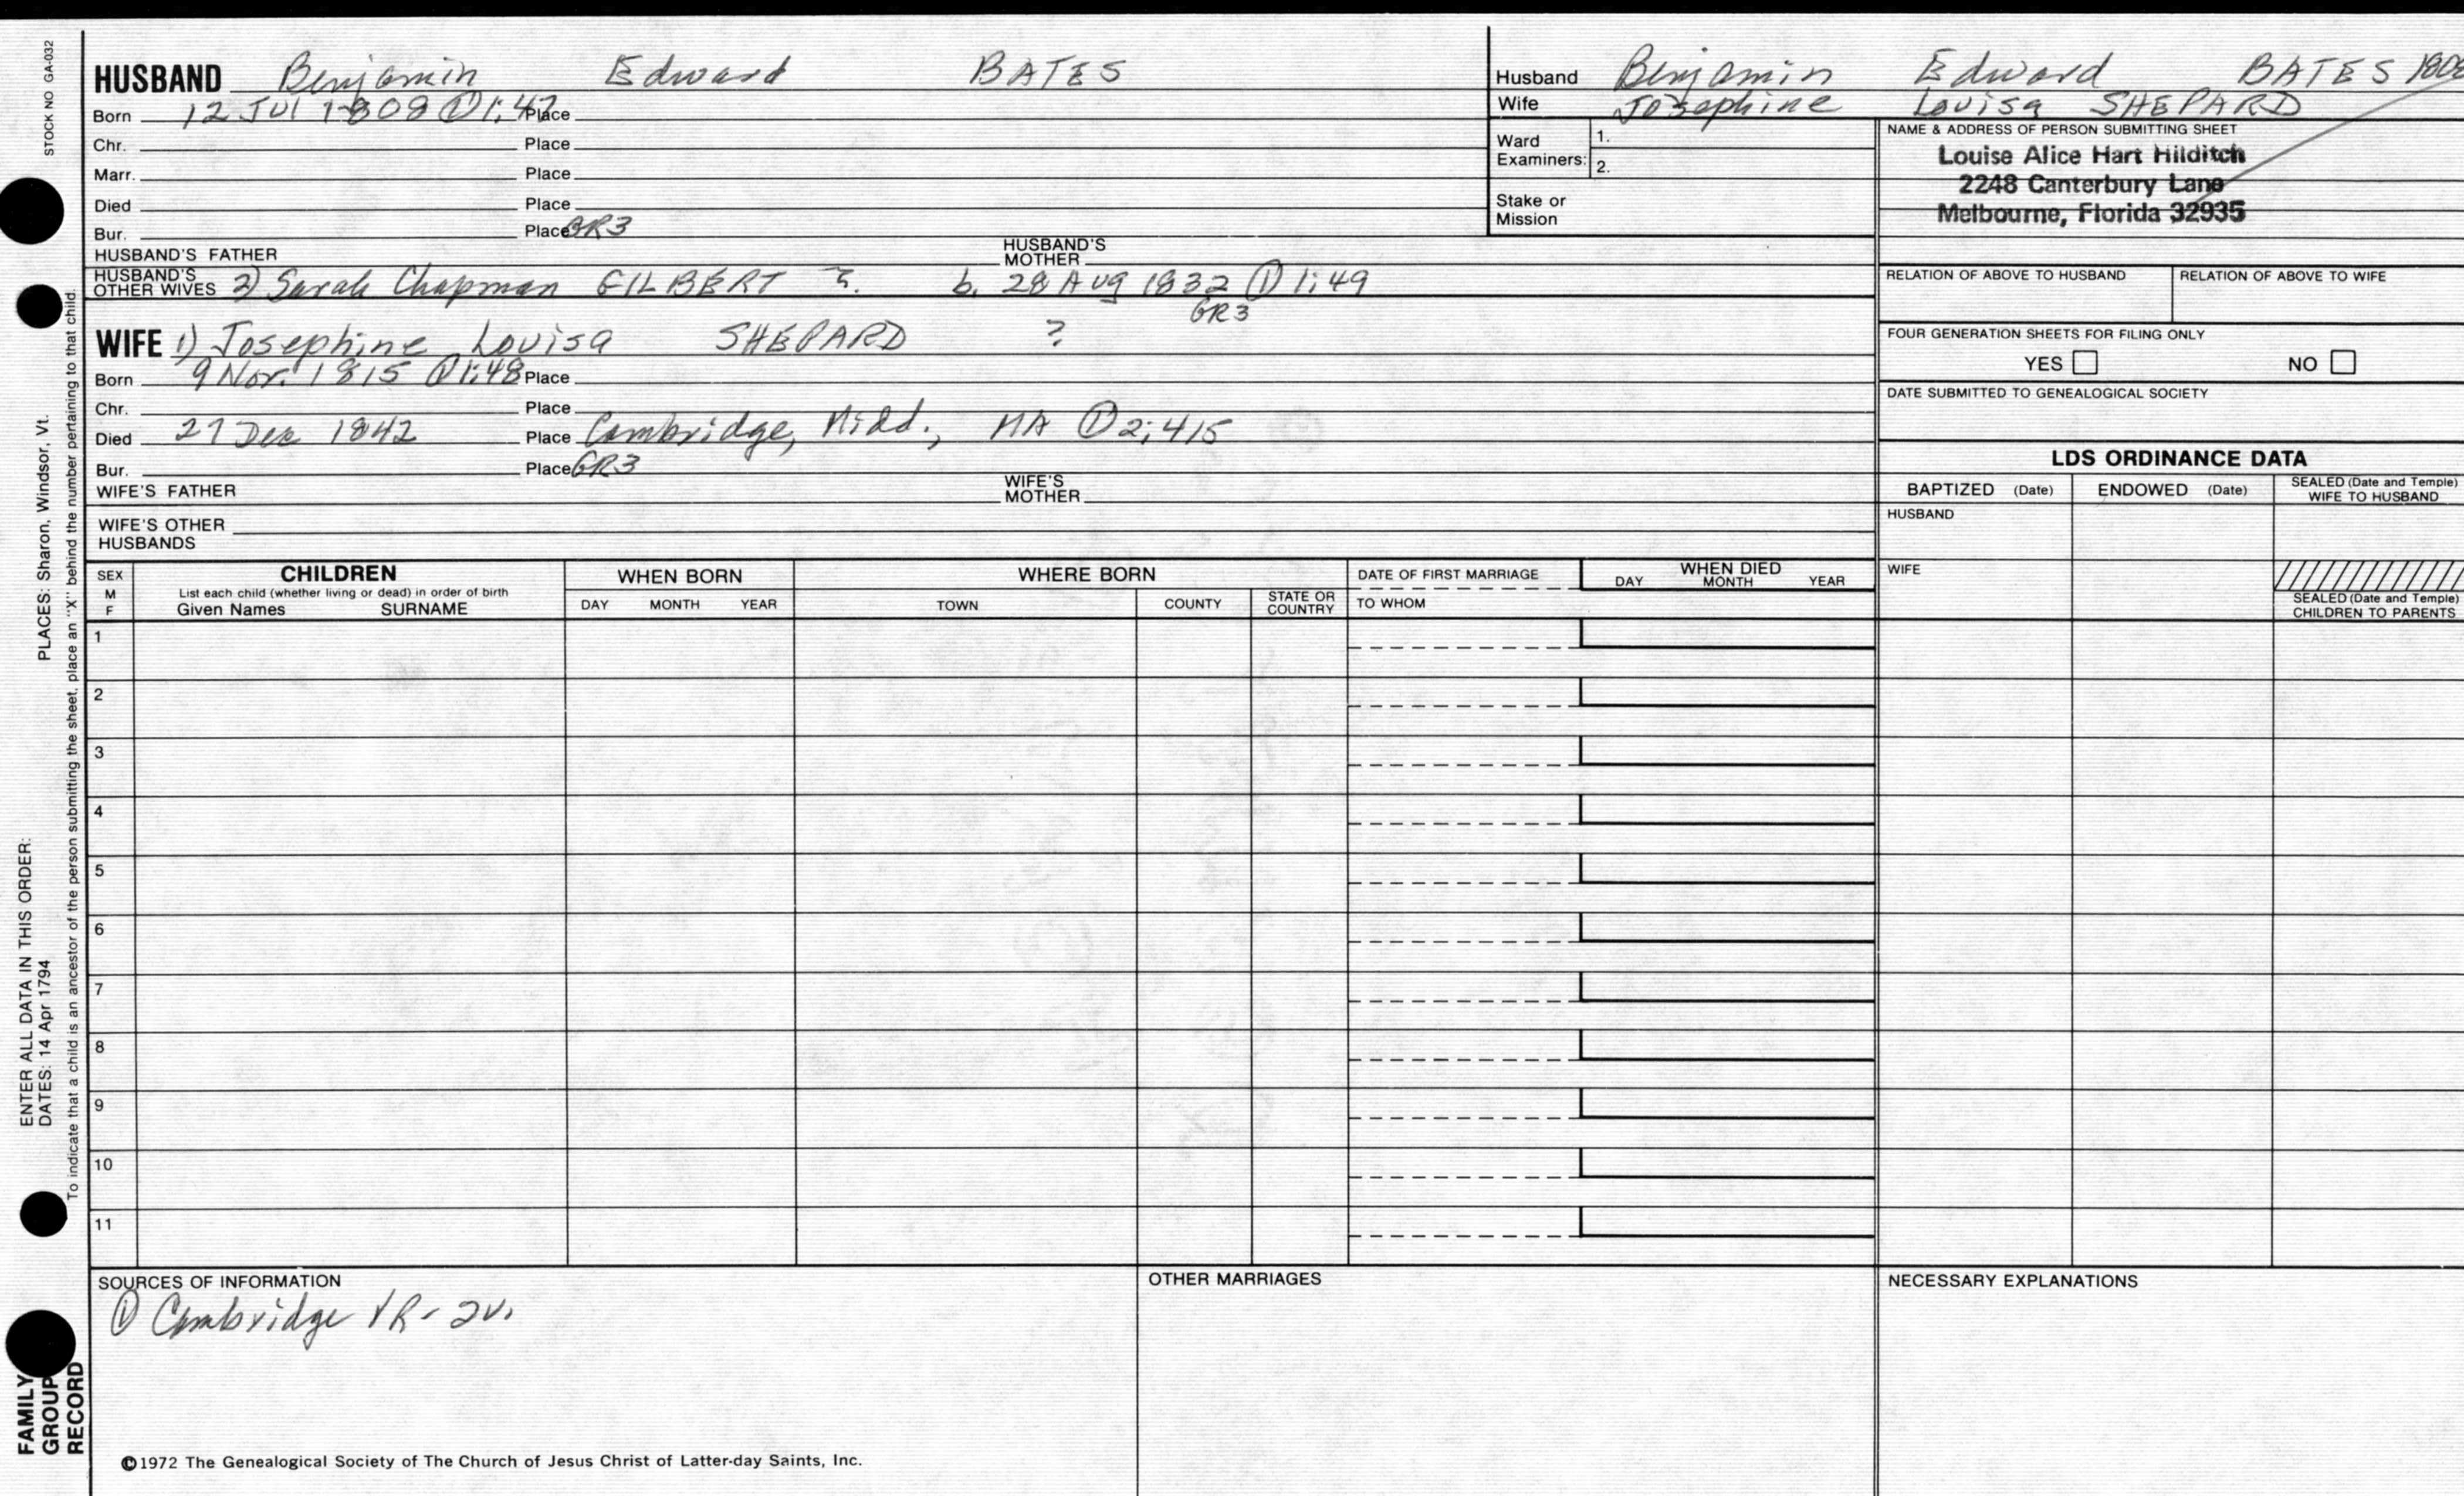 STOCK NO GA-032
HUSBAND Benjamin Edward BATES
Born 12 Jul 1808 ① 1:47 Place
Chr. Place
Marr. Place
Died Place
Bur. Place GR3
HUSBAND'S FATHER HUSBAND'S MOTHER
HUSBAND'S OTHER WIVES 2) Sarah Chapman GILBERT ?. b. 28 Aug 1832 ① 1:49
GR3
WIFE 1) Josephine Louisa SHEPARD ?
Born 9 Nov. 1815 ① 1:48 Place
Chr. Place
Died 27 Dec 1842 Place Cambridge, Midd., MA ① 2:415
Bur. Place GR3
WIFE'S FATHER WIFE'S MOTHER
WIFE'S OTHER HUSBANDS
Husband Benjamin Edward BATES 1808
Wife Josephine Louisa SHEPARD
Ward Examiners: 1.
2.
Stake or Mission
NAME & ADDRESS OF PERSON SUBMITTING SHEET
Louise Alice Hart Hilditch
2248 Canterbury Lane
Melbourne, Florida 32935
RELATION OF ABOVE TO HUSBAND RELATION OF ABOVE TO WIFE
FOUR GENERATION SHEETS FOR FILING ONLY
YES NO
DATE SUBMITTED TO GENEALOGICAL SOCIETY
LDS ORDINANCE DATA
BAPTIZED (Date) ENDOWED (Date) SEALED (Date and Temple) WIFE TO HUSBAND
HUSBAND
WIFE
SEALED (Date and Temple) CHILDREN TO PARENTS
SEX M F
CHILDREN
List each child (whether living or dead) in order of birth
Given Names SURNAME
WHEN BORN
DAY MONTH YEAR
WHERE BORN
TOWN COUNTY STATE OR COUNTRY
DATE OF FIRST MARRIAGE
TO WHOM
WHEN DIED
DAY MONTH YEAR
1
2
3
4
5
6
7
8
9
10
11
SOURCES OF INFORMATION
① Cambridge VR - 2v.
OTHER MARRIAGES
NECESSARY EXPLANATIONS
©1972 The Genealogical Society of The Church of Jesus Christ of Latter-day Saints, Inc.
ENTER ALL DATA IN THIS ORDER:
DATES: 14 Apr 1794 PLACES: Sharon, Windsor, Vt.
To indicate that a child is an ancestor of the person submitting the sheet, place an "X" behind the number pertaining to that child.
FAMILY GROUP RECORD